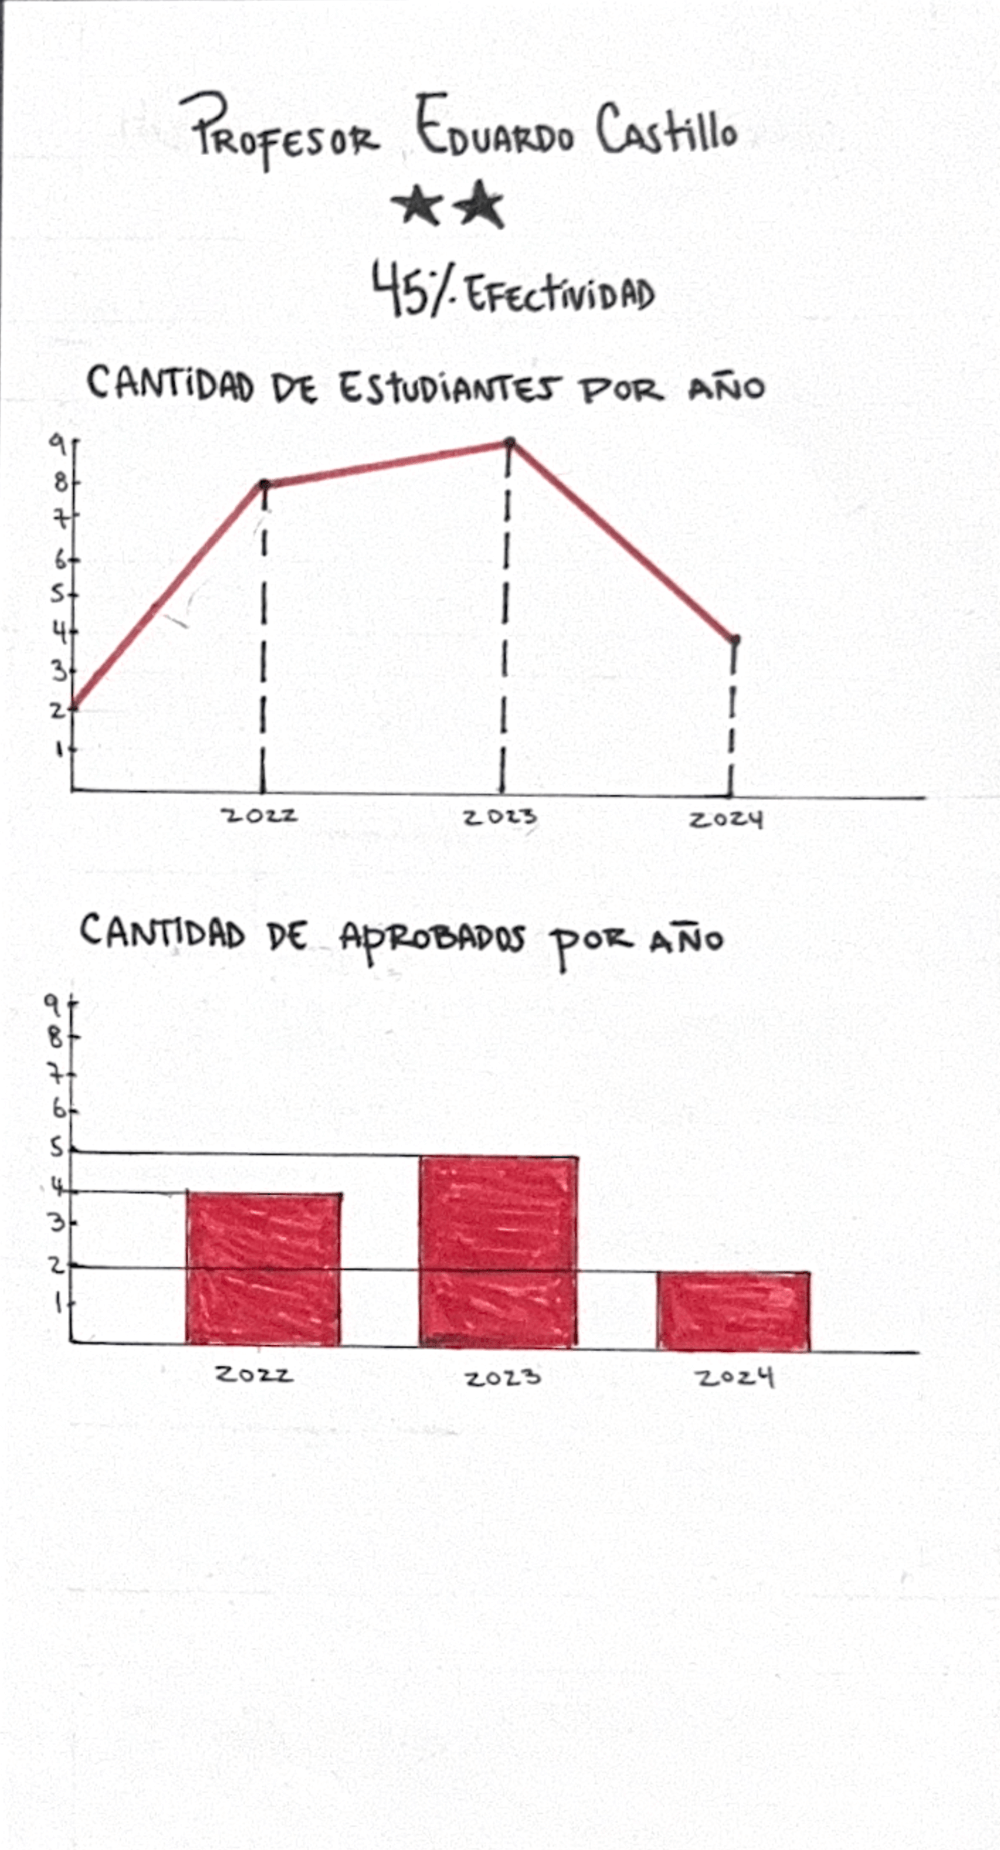 PROFESOR EDUARDO CAStillo
★★
45% EFECtiViDAD
CANTiDAD DE EStUDiANTES POR AÑO
9
8
7
6
5
4
3
2
1
2022 2023 2024
CANTIDAD DE APROBADOS POR AÑO
9
8
7
6
5
4
3
2
1
2022 2023 2024